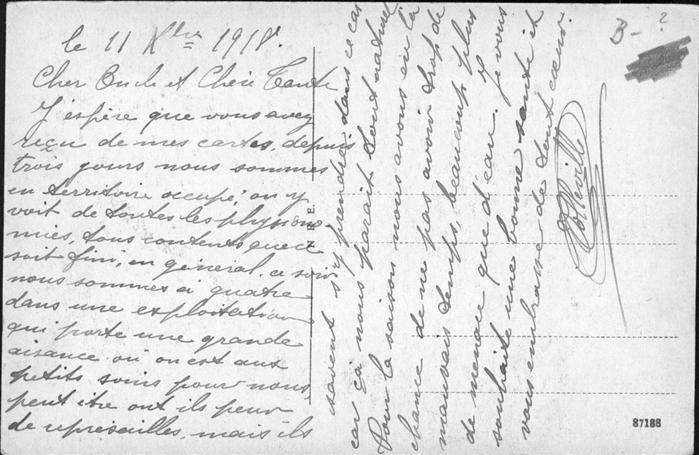 le 11 Xbre 1918.
Cher Oncle et Chère Tante
J'espère que vous avez
reçu de mes cartes, depuis
trois jours nous sommes
en territoire occupé, on y
voit de toutes les physiono-
mies, tous contents que ce
soit fini, en général, ce soir
nous sommes à quatre
dans une exploitation
qui porte une grande
aisance où on est aux
petits soins pour nous
peut être ont ils peur
de représailles, mais ils
savent s'y prendre dans ce cas
car ça nous parait tout naturel
Pour la saison nous avons eu la
chance de ne pas avoir trop de
mauvais temps, beaucoup plus
de menace que d'eau. Je vous
souhaite une bonne santé et
vous embrasse de tout cœur.
B- ?
87188